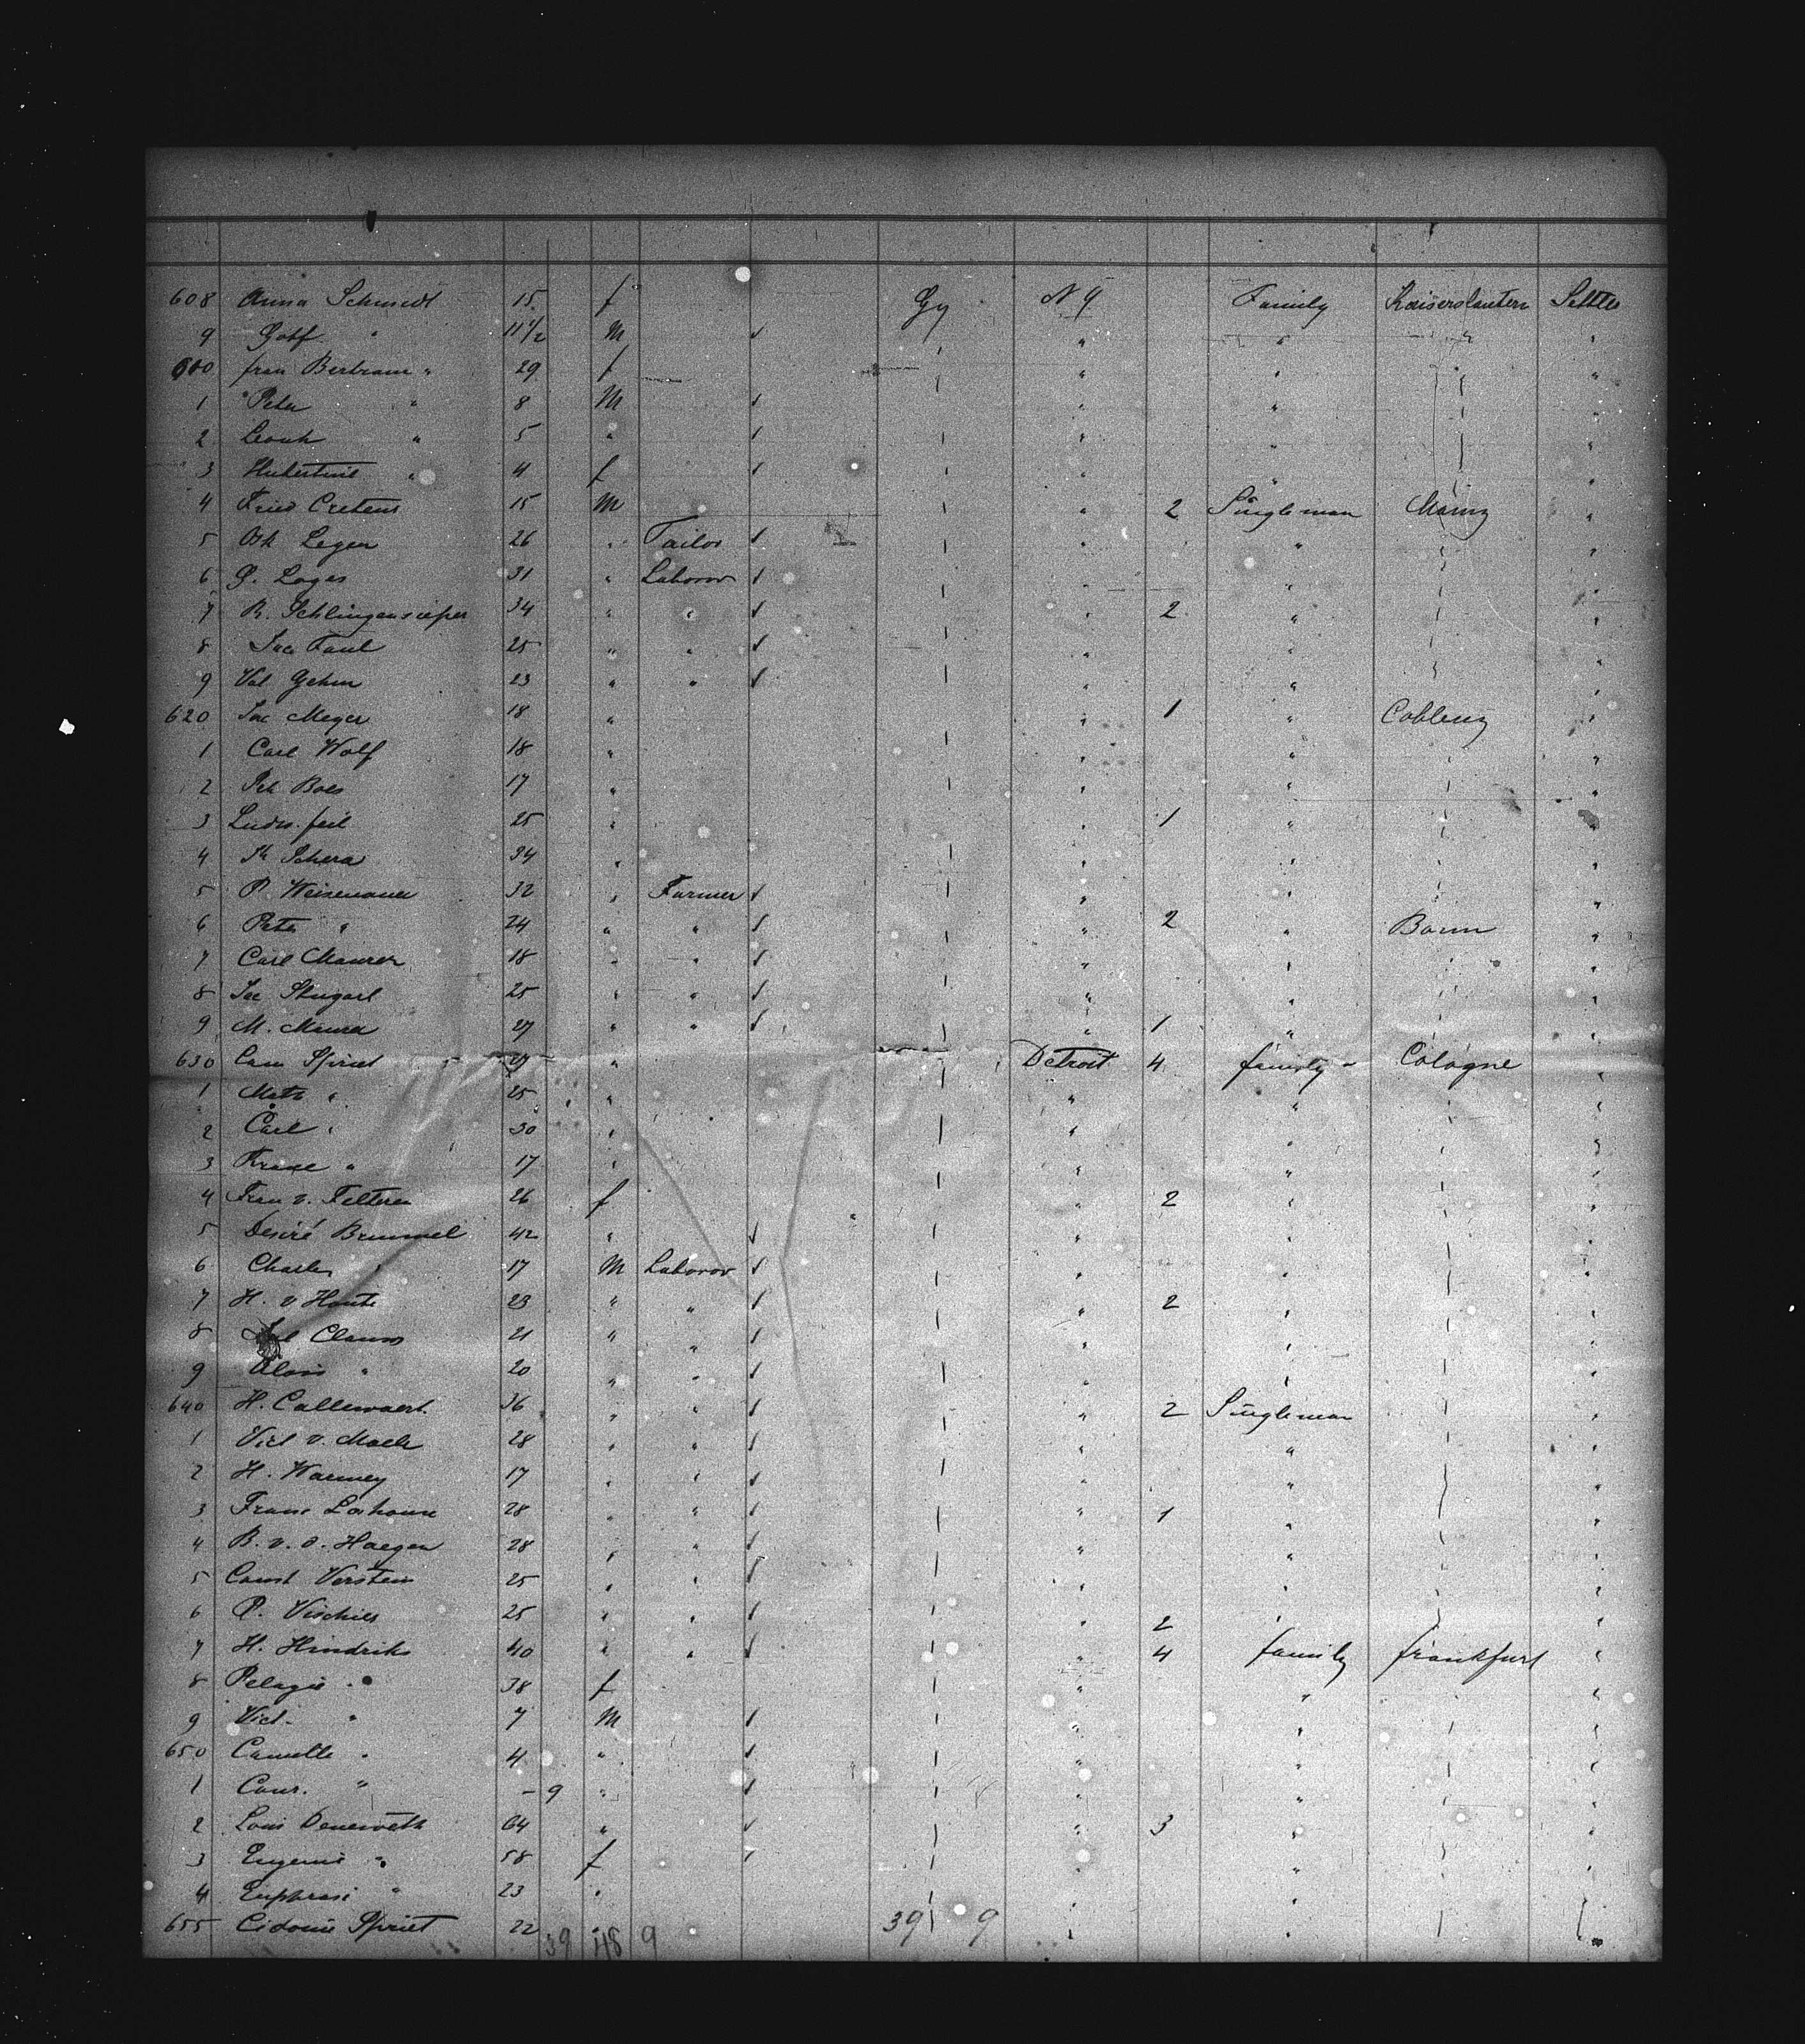 608 Anna Schmidt 15 f Gy N Y Family Kaiserslautern Settler
9 Gotf. " 11 1/2 M " " " "
610 frau Bertram " 29 f " " "
1 Peter " 8 M " " "
2 Leonh " 5 " " " "
3 Hubertine " 4 f " " "
4 Fried Cretens 15 M " 2 Singleman Mainz "
5 Legen 26 " Tailor " " "
6 G. Loges 31 " Laboror " " "
7 R. Schlingensieper 34 " " " 2 " "
8 Jac Faul 25 " " " " "
9 Val Gehm 23 " " " " "
620 Jac Meyer 18 " " 1 " Coblenz "
1 Carl Wolf 18 " " " "
2 Pet Boes 17 " " " "
3 Ludw. feil 25 " " 1 " "
4 Schera 34 " " " "
5 P. Weisenauer 32 " Farmer " " "
6 Peter " 24 " " " 2 " Bonn "
7 Carl Maurer 18 " " " " "
8 Jac Stugart 25 " " " " "
9 M. Maurer 27 " " " 1 " "
630 Cam Spriet 29 " Detroit 4 family Cologne "
1 Math " 25 " " " "
2 Carl " 30 " " " "
3 " 17 " " " "
4 Frau v. Felteren 26 f " 2 " "
5 Desiré Brummel 42 " " " "
6 Charles " 17 M Laboror " " "
7 H. v Houte 23 " " " 2 " "
8 Clauws 21 " " " " "
9 Alois " 20 " " " " "
640 H. Callewaert. 36 " " " 2 Singleman "
1 Vict v. Maele 28 " " " " "
2 H. Warmey 17 " " " " "
3 Franz 28 " " " 1 " "
4 B. v. d. Haegen 28 " " " " "
5 Const Verstein 25 " " " " "
6 P. Vischies 25 " " " 2 " "
7 H. Hindriks 40 " " " 4 family frankfurt "
8 Pelagie " 38 f " " "
9 Vict. " 7 M " " "
650 Camille " 4 " " " "
1 Cour. " - 9 " " " "
2 Louis Deneweth 64 " " 3 " "
3 Eugenie " 58 f " " "
4 Euphrasi " 23 " " " "
655 Cidonie Spriet 22 " " "
39 48 9 39 9